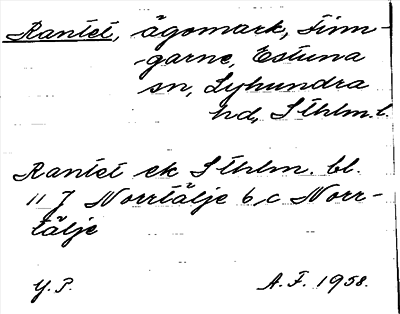 Rantet, ägomark, Finn-
garne, Estuna
sn, Lyhundra
hd, Sthlm. l.
Rantet ek Sthlm. bl.
117 Norrtälje 6 c Norr-
tälje
Y. P. A. F. 1958.